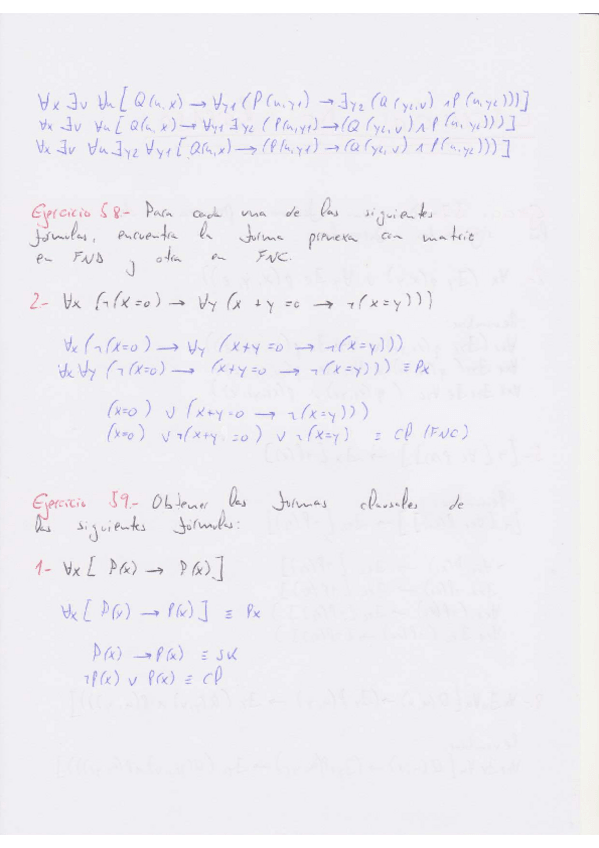 ∀x ∃v ∀u [ Q(u,x) → ∀y1 ( P(u,y1) → ∃y2 ( Q(y2,v) ∧ P(u,y2)))]
∀x ∃v ∀u [ Q(u,x) → ∀y1 ∃y2 ( P(u,y1) → (Q(y2,v) ∧ P(u,y2)))]
∀x ∃v ∀u ∃y2 ∀y1 [ Q(u,x) → (P(u,y1) → (Q(y2,v) ∧ P(u,y2)))]
Ejercicio 58.- Para cada una de las siguientes
fórmulas, encuentra la forma prenexa con matriz
en FND y otra en FNC.
2- ∀x (¬(x=0) → ∀y (x + y = 0 → ¬(x=y)))
∀x (¬(x=0) → ∀y (x+y=0 → ¬(x=y)))
∀x ∀y (¬(x=0) → (x+y=0 → ¬(x=y))) ≡ Px
(x=0) ∨ (x+y=0 → ¬(x=y)))
(x=0) ∨ ¬(x+y=0) ∨ ¬(x=y) ≡ Cl (FNC)
Ejercicio 59.- Obtener las formas clausales de
las siguientes fórmulas:
1- ∀x [ P(x) → P(x)]
∀x [ P(x) → P(x)] ≡ Px
P(x) → P(x) ≡ SK
¬P(x) ∨ P(x) ≡ Cl